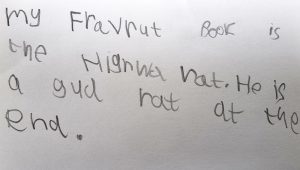 my Fravrut Book is
the Highwa rat. He is
a gud rat at the
end.